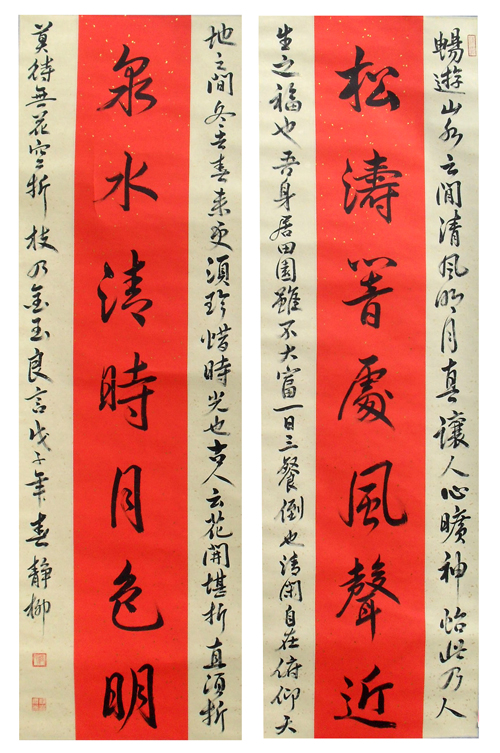 暢遊山水之間清風明月真讓人心曠神怡此乃人
松濤著處風聲近
生之福也吾身居田園雖不大富一日三餐倒也清閑自在俯仰天
地之間冬去春来更須珍惜時光也古人云花開堪折直須折
泉水清時月色明
莫待無花空折枝乃金玉良言戊子年春静柳